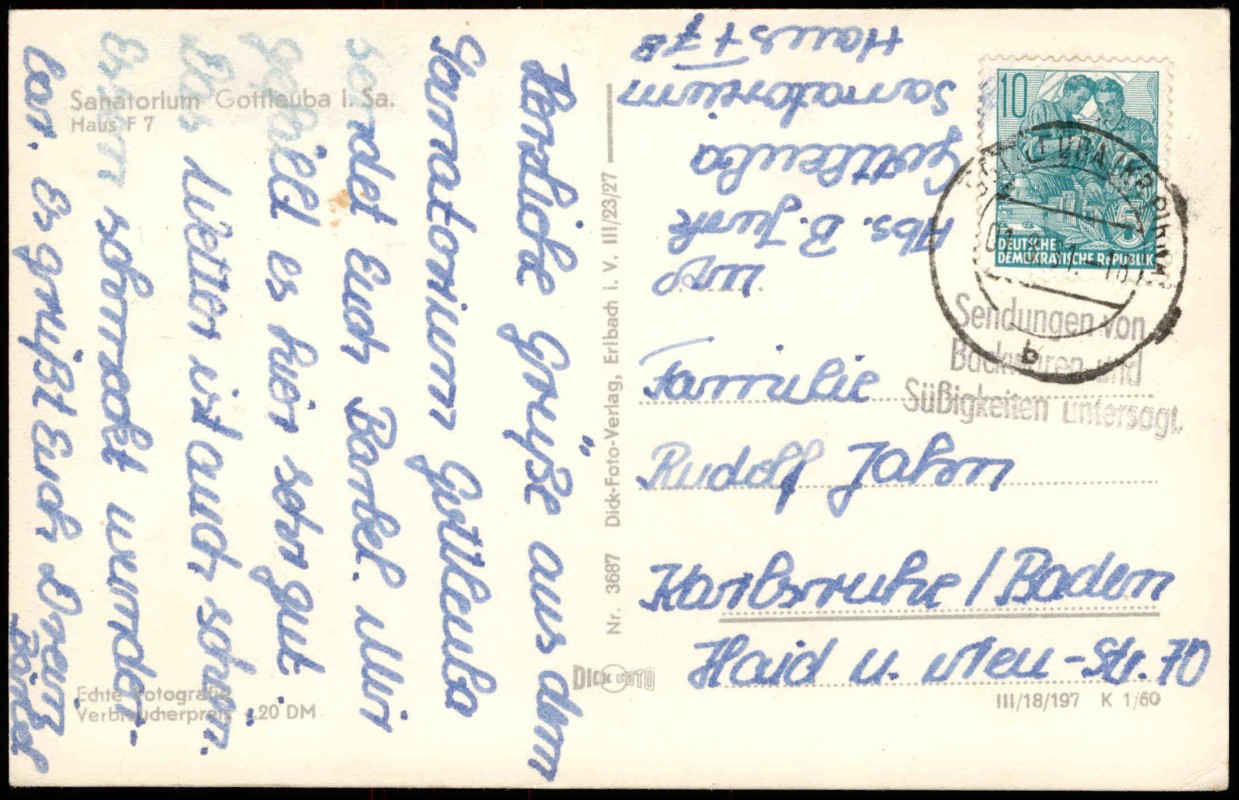 Sanatorium Gottleuba i. Sa.
Haus F 7
Herzliche Grüße aus dem
Sanatorium Gottleuba
sendet Euch Bärbel. Mir
gefällt es hier sehr gut.
Das Wetter ist auch schön.
Essen schmeckt wunder-
bar. Es grüßt Euch Dreien
Bärbel
Echte Fotografie
Verbraucherpreis -.20 DM
Nr. 3687 Dick-Foto-Verlag, Erlbach i. V. III/23/27
DICK FOTO
Abs. B. Junk
Gottleuba
Sanatorium
Haus F 7B
10
DEUTSCHE
DEMOKRATISCHE REPUBLIK
5
b
Sendungen von
Backwaren und
Süßigkeiten untersagt.
Familie
Rudolf Jahn
Karlsruhe / Baden
Haid u. Neu-Str. 70
III/18/197 K 1/60